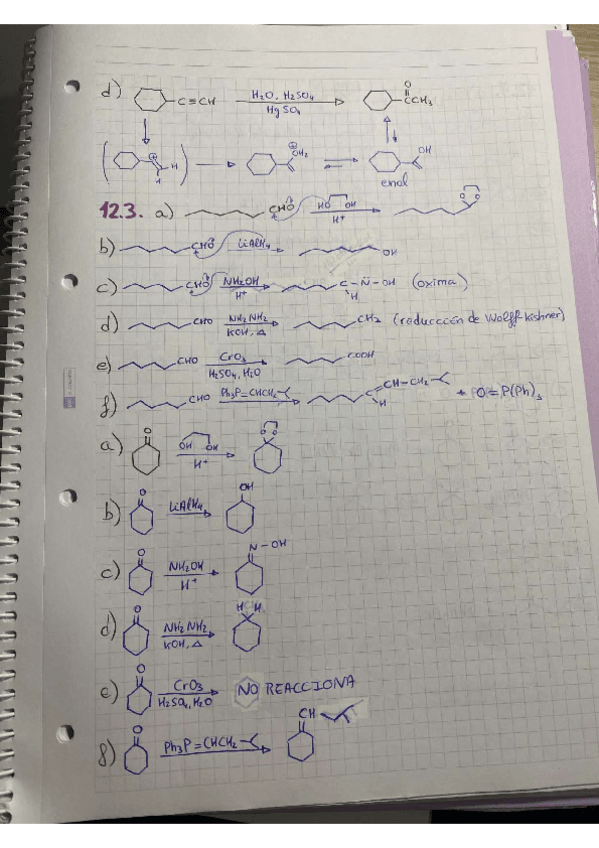 d) C≡CH H₂O, H₂SO₄ HgSO₄ O CCH₃
⊕ H ⊕OH₂ OH
enol
12.3. a) CHO HO OH H⁺ O O
b) CHO LiAlH₄ OH
c) CHO NH₂OH H⁺ C-N̈-OH H (oxima)
d) CHO NH₂NH₂ KOH, Δ CH₃ (reducción de Wolff-Kishner)
e) CHO CrO₃ H₂SO₄, H₂O COOH
f) CHO Ph₃P=CHCH₂ C=CH-CH₂ H + O=P(Ph)₃
a) O OH OH H⁺ O O
b) O LiAlH₄ OH
c) O NH₂OH H⁺ N-OH
d) O NH₂NH₂ KOH, Δ H H
e) O CrO₃ H₂SO₄, H₂O NO REACCIONA
f) O Ph₃P=CHCH₂ CH